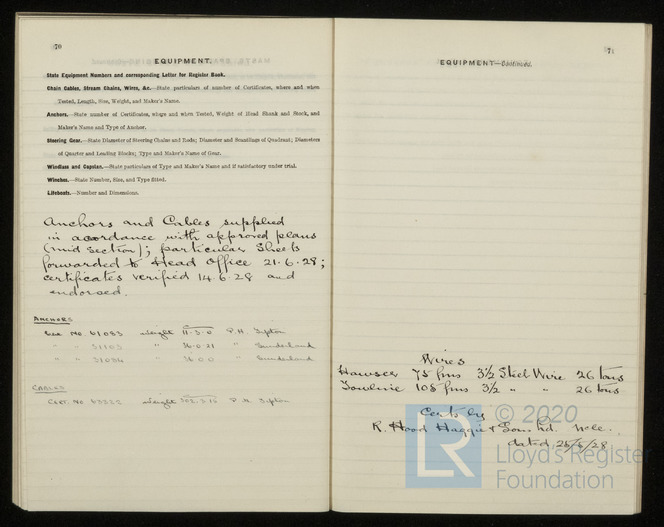 70
EQUIPMENT.
State Equipment Numbers and corresponding Letter for Register Book.
Chain Cables, Stream Chains, Wires, &c.—State particulars of number of Certificates, where and when
Tested, Length, Size, Weight, and Maker's Name.
Anchors.—State number of Certificates, where and when Tested, Weight of Head Shank and Stock, and
Maker's Name and Type of Anchor.
Steering Gear.—State Diameter of Steering Chains and Rods; Diameter and Scantlings of Quadrant; Diameters
of Quarter and Leading Blocks; Type and Maker's Name of Gear.
Windlass and Capstan.—State particulars of Type and Maker's Name and if satisfactory under trial.
Winches.—State Number, Size, and Type fitted.
Lifeboats.—Number and Dimensions.
Anchors and Cables supplied
in accordance with approved plans
(mid section); particular Sheets
forwarded to Head Office 21.6.28;
certificates verified 14.6.28 and
endorsed.
ANCHORS
No 61083 weight 11.3.0 P.H. Tipton
" " " 36.0.21 " Sunderland
" " " 36 0 0 " Sunderland
CABLES
Cert. No weight P.H. Tipton
71
EQUIPMENT—Continued.
Wires
Hawser 75 fms 3½ Steel Wire 26 tons
Towline 108 fms 3½ " " 26 tons
Certs by
R. Hood Haggie & Sons Ltd. N'cle.
dated 28
© 2020
LR
Lloyd's Register
Foundation